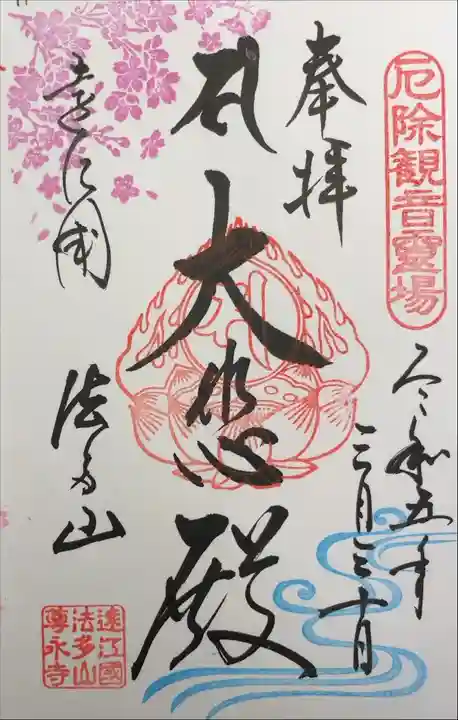 厄除観音霊場
奉拝
令和五年
三月三十日
大悲殿
遠江国
法多山
遠江國
法多山
尊永寺